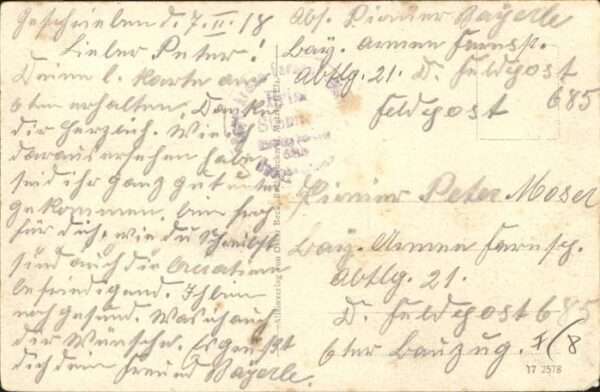 Geschrieben d. 7. II. 18
Lieber Peter!
Deine l. Karte am
6ten erhalten. Danke
dir herzlich. Wie ich
daraus ersehen habe
seid ihr ganz gut unter
gekommen, bin froh
für dich, wie du schreibst
sind auch die
befriedigend. Ich bin
noch gesund. Was ich auch
dir Wünsche. Es grüßt
dich dein Freund Bayerle.
Abs. Pionier Bayerle
bay. Armee Fernsp.
Abtlg. 21. D. Feldpost
Feldpost 685
Pionier Peter Moser
bay. Armee Fernsp.
Abtlg. 21.
D. Feldpost 685
6ter Bauzug.
17 2578